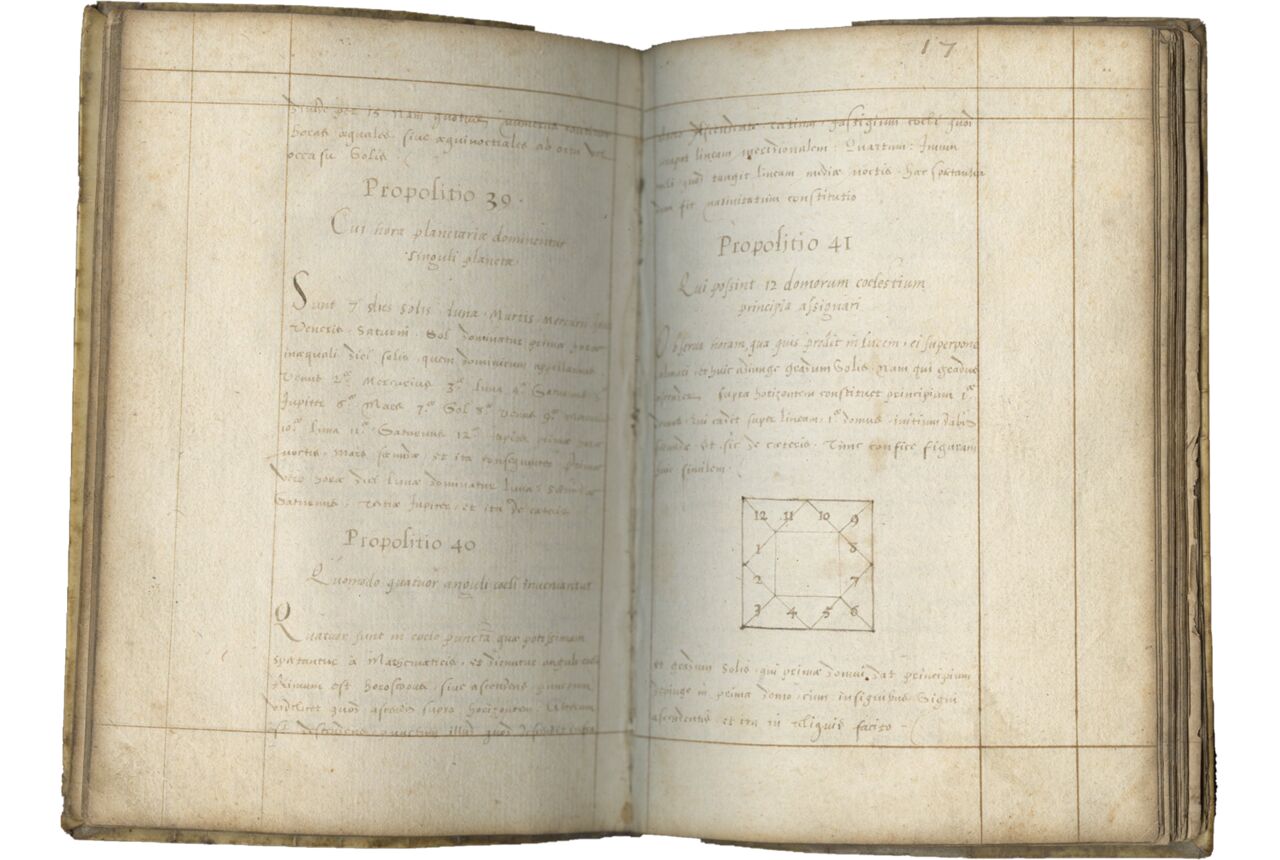 per 15 Nam
horas æquales sive æquinoctiales ab ortu vel
occasu Solis
Propositio 39
Cui horæ planetariæ dominentur
singuli planetæ
Sunt 7 dies solis Luna Martis Mercurii
Veneris Saturni Sol dominatur primæ horæ
inæquali diei solis quem dominicum appellamus
Venus 2ª Mercurius 3ª Luna 4ª Saturnus
Jupiter 6ª Mars 7ª Sol 8ª Venus 9ª
10ª Luna 11ª Saturnus 12ª Jupiter primæ horæ
noctis Mars secundæ et ita consequenter Primæ
vero horæ diei Lunæ dominatur Luna secundæ
Saturnus Tertiæ Jupiter et ita de cæteris
Propositio 40
Quomodo quatuor anguli cœli inveniantur
Quatuor sunt in coelo puncta quæ potissimum
spectantur à Mathematicis et dicuntur anguli cœli
Primum est horoscopus sive ascendens punctum
videlicet quod ascendit supra horizontem
descendens punctum illud quod
17
fastigium coeli quod
lineam meridionalem Quartum Imum
quod tangit lineam mediæ noctis
fit nativitatum constitutio
Propositio 41
Qui possint 12 domorum coelestium
principia assignari
Observa horam qua quis prodit in lucem ei superpone
et huic adiunge gradum Solis Nam qui gradus
supra horizontem constituet principium 1æ
domus qui cadet super lineam 1æ domus initium dabit
secundæ et sic de cæteris Tunc confice figuram
huic similem
12 11 10 9
1 8
2 7
3 4 5 6
et gradum Solis qui primæ domui dat principium
in prima domo cum insignibus Signi
ascendentis et ita in reliquis facito